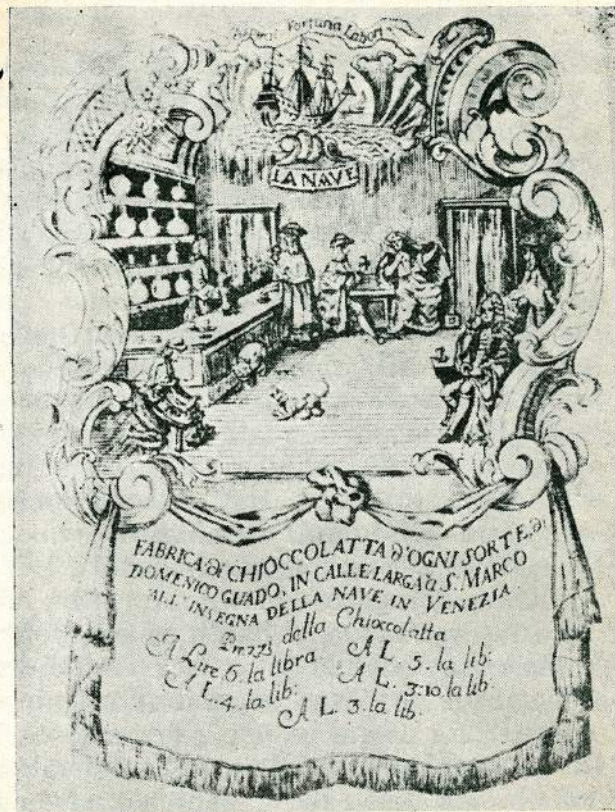 Fortuna Labori
LA NAVE
FABRICA DI CHIOCCOLATTA D'OGNI SORTE, DI
DOMENICO GUADO, IN CALLE LARGA A S. MARCO
ALL'INSEGNA DELLA NAVE IN VENEZIA
Prezzi della Chioccolatta
A Lire 6. la libra A L. 5. la lib:
A L. 4. la lib: A L. 3:10. la lib:
A L. 3. la lib: